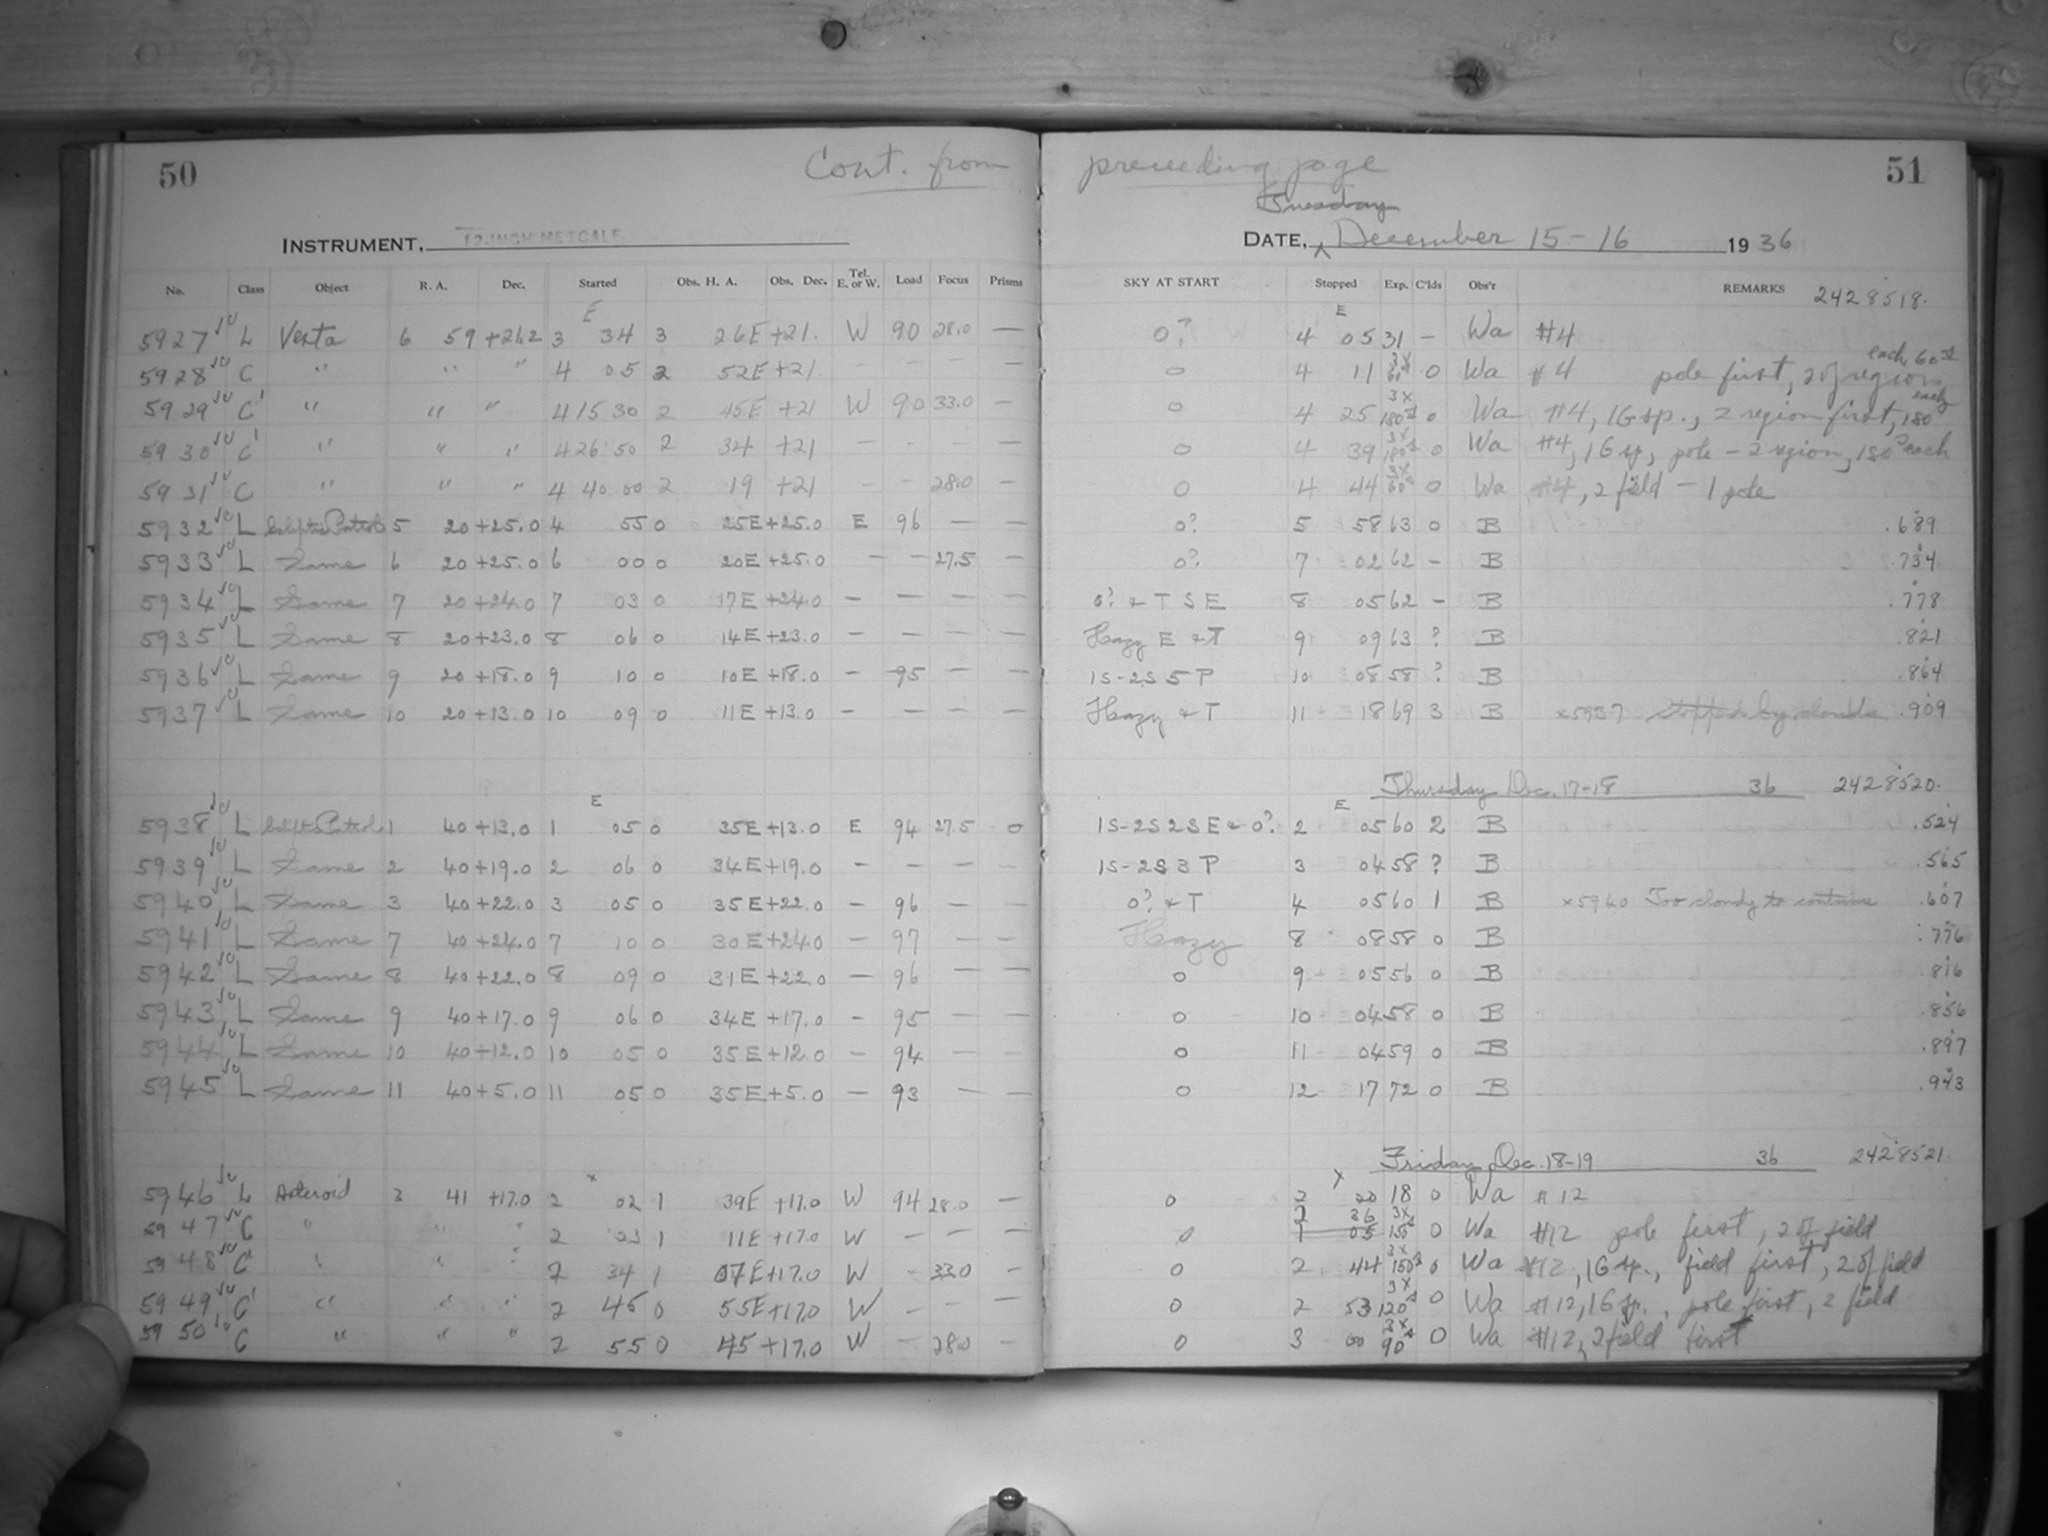 50 Cont. from preceding page 51
Tuesday
INSTRUMENT, 12-INCH METCALF DATE, December 15-16 1936
No. Class Object R. A. Dec. Started Obs. H. A. Obs. Dec. Tel. E. or W. Load Focus Prisms SKY AT START Stopped Exp. C'lds Obs'r REMARKS 2428518.
E E
5927 L Vesta 6 59 +21.2 3 34 3 26E +21. W 90 28.0 — 0? 4 05 31 - Wa #4
each 60s
5928 C " " " 4 05 2 52E +21. - - - - 0 4 11 3x 60s 0 Wa #4 pole first, 2 of region
5929 C' " " " 4 15 30 2 45E +21 W 90 33.0 — 0 4 25 3x 180s 0 Wa #4, 1G sp., 2 region first, 180 each
5930 C' " " " 4 26 50 2 34 +21 - - - - 0 4 39 3x 180s 0 Wa #4, 1G sp, pole - 2 region, 180s each
5931 C " " " 4 40 00 2 19 +21 - - 28.0 — 0 4 44 3x 60s 0 Wa #4, 2 field - 1 pole
5932 L Ecliptic Patrol 5 20 +25.0 4 55 0 25E +25.0 E 96 — — 0? 5 58 63 0 B .689
5933 L Same 6 20 +25.0 6 00 0 20E +25.0 — — 27.5 — 0? 7 02 62 - B .734
5934 L Same 7 20 +24.0 7 03 0 17E +24.0 — — — — 0? & T S E 8 05 62 - B .778
5935 L Same 8 20 +23.0 8 06 0 14E +23.0 — — — — Hazy E & T 9 09 63 ? B .821
5936 L Same 9 20 +18.0 9 10 0 10E +18.0 — 95 — — 1S-2S 5 P 10 08 58 ? B .864
5937 L Same 10 20 +13.0 10 09 0 11E +13.0 — — — — Hazy & T 11 18 69 3 B x5937 stopped by clouds .909
Thursday Dec. 17-18 36 2428520.
E E
5938 L Ecliptic Patrol 1 40 +13.0 1 05 0 35E +13.0 E 94 27.5 0 1S-2S 2 S E & 0? 2 05 60 2 B .524
5939 L Same 2 40 +19.0 2 06 0 34E +19.0 — — — — 1S-2S 3 P 3 04 58 ? B .565
5940 L Same 3 40 +22.0 3 05 0 35E +22.0 — 96 — — 0? & T 4 05 60 1 B x5940 Too cloudy to continue .607
5941 L Same 7 40 +24.0 7 10 0 30E +24.0 — 97 — — Hazy 8 08 58 0 B .776
5942 L Same 8 40 +22.0 8 09 0 31E +22.0 — 96 — — 0 9 05 56 0 B .816
5943 L Same 9 40 +17.0 9 06 0 34E +17.0 — 95 — — 0 10 04 58 0 B .856
5944 L Same 10 40 +12.0 10 05 0 35E +12.0 — 94 — — 0 11 04 59 0 B .897
5945 L Same 11 40 +5.0 11 05 0 35E +5.0 — 93 — — 0 12 17 72 0 B .943
Friday Dec. 18-19 36 2428521
x x
5946 L Asteroid 3 41 +17.0 2 02 1 39E +17.0 W 94 28.0 — 0 2 20 18 0 Wa #12
5947 C " " " 2 03 1 11E +17.0 W — — — 0 2 36 1 05 3x 15s 0 Wa #12 pole first, 2 of field
5948 C' " " " 2 34 1 07E +17.0 W - 33.0 — 0 2 44 3x 150s 0 Wa #12, 1G sp., field first, 2 of field
5949 C' " " " 2 45 0 55E +17.0 W — — — 0 2 53 3x 120s 0 Wa #12, 1G sp., pole first, 2 field
5950 C " " " 2 55 0 45 +17.0 W — 28.0 — 0 3 00 3x 90s 0 Wa #12, 2 field first